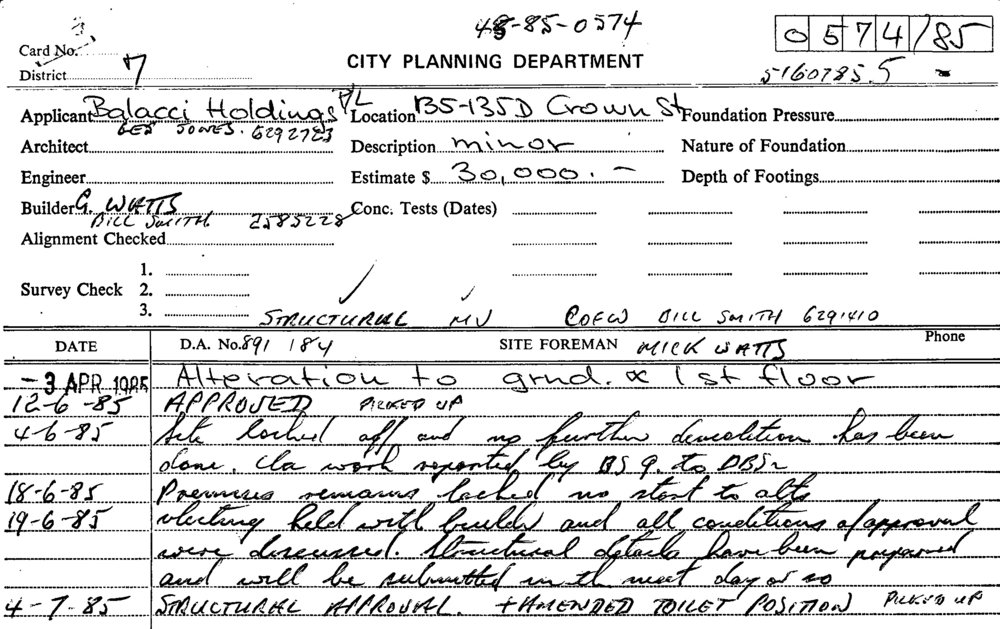 48-85-0574
0574/85
Card No. 3
District 7
CITY PLANNING DEPARTMENT
5160785.5
Applicant Balacci Holdings P/L Location 135-135D Crown St Foundation Pressure
GED JONES. 6292723
Architect Description minor Nature of Foundation
Engineer Estimate $ 30,000. — Depth of Footings
Builder G. WATTS Conc. Tests (Dates)
BILL SMITH 2585228
Alignment Checked
1.
Survey Check 2.
3.
STRUCTURAL MV COFW BILL SMITH 6291410
DATE D.A. No. 891 184 SITE FOREMAN MICK WATTS Phone
-3 APR 1985 Alteration to grnd. & 1st floor
12-6-85 APPROVED PICKED UP
4-6-85 Site locked off and no further demolition has been
done. work reported by BS 9. to DBSr
18-6-85 Premises remains locked no start to alts
19-6-85 Meeting held with builder and all conditions of approval
were discussed. Structural details have been prepared
and will be submitted in th next day or so
4-7-85 STRUCTURAL APPROVAL. + AMENDED TOILET POSITION PICKED UP